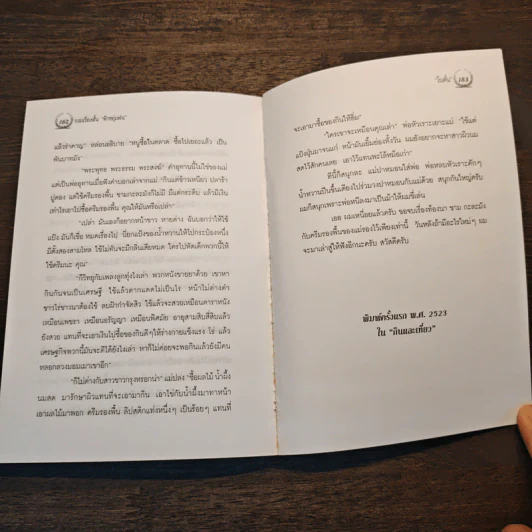 182 รวมเรื่องสั้น "ฟ้าพลุ่งฝน"
แล้วรำคาญ" หล่อนอธิบาย "หนูซื้อในตลาด ซื้อไปเยอะแล้ว เป็น
พันบาทมั้ง"
"พระพุทธ พระธรรม พระสงฆ์" คำอุทานนี้ไม่ใช่ของแม่
แต่เป็นพ่ออุทานเมื่อฟังคำบอกเล่าจากแม่ "กินแต่ข้าวเหนียว ปลาร้า
ปูดอง แต่ใช้ครีมรองพื้น ชามกะละมังก็ไม่มี มีแต่กระสับ แล้วมีเงิน
เท่าไหลเอาไปซื้อครีมรองพื้น คุณให้มันหรือเปล่า"
"เปล่า มันเองก็อยากหน้าขาว ทายด่าง ฉันบอกว่าให้ใช้
แป้ง มันก็เชื่อ หมดเรื่องไป นี่ยกแป้งของน้ำหวานให้ไปกระป๋องหนึ่ง
มีตั้งสองสามโหล ใช้ไม่ทันจะมีกลิ่นเสียหมด ใครไปหัดเด็กพวกนี้ให้
ใช้ครีมนะ คุณ"
"ก็วิทยุกับเพลงลูกทุ่งไงเล่า พวกหนังขายยาด้วย เขาหา
กินกันจนเป็นเศรษฐี ใช้แล้วตากแดดไม่เป็นไร หน้าไม่ด่างดำ
ชาวไร่ชาวนาต้องใช้ ลบฝ้ากำจัดสิว ใช้แล้วจะสวยเหมือนดาราหนัง
เหมือนเพชรา เหมือนอรัญญา เหมือนพิศมัย อายุสามสิบสี่สิบแล้ว
ยังสวย แทนที่จะเอาเงินไปซื้อของกินดีๆให้ร่างกายแข็งแรง ไร่ แล้ว
เศรษฐกิจพวกนี้มันจะดีได้ยังไงเล่า หาก็ไม่ค่อยจะพอกินแล้วยังมีคน
หลอกลวงมอมเมาเขาอีก"
"ก็ไม่ต่างกับสาวชาวกรุงหรอกน่า" แม่ปลง "ซื้อผลไม้ น้ำผึ้ง
นมสด มารักษาผิวแทนที่จะเอามากิน เอาไข่กับน้ำผึ้งมาทาหน้า
เอาผลไม้มาพอก ครีมรองพื้น ลิปสติกแท่งหนึ่งๆ เป็นร้อยๆ แทนที่
183
จะเอามาซื้อของกินให้อิ่ม"
"ใครเขาจะเหมือนคุณเล่า" พ่อหัวเราะเยาะแม่ "ใช้แต่
แป้งฝุ่นมาจนแก่ หน้ามันเยิ้มย่องทั้งวัน ผมยังอยากจะหาสาวผิวนม
สดไว้สักคนเลย เอาไว้แทนพะโล้หมือเก่า"
ทีนี้ก็สนุกละ แม่เป่าหมอนใส่พ่อ พ่อหลบหัวเราะคักๆ
น้ำหวานปีนขึ้นเตียงไปร่วมวงปาหมอนกับแม่ด้วย สนุกกันใหญ่ครับ
ผมก็สนุกเพราะพ่อหนีลงมาเป็นม้าให้ผมขี่เล่น
เออ ผมเหนื่อยแล้วครับ ขอจบเรื่องท้องนา ชาม กะละมัง
กับครีมรองพื้นของแม่รองไว้เพียงเท่านี้ วันหลังถ้ามีอะไรใหม่ๆ ผม
จะมาเล่าสู่ให้ฟังอีกนะครับ สวัสดีครับ
พิมพ์ครั้งแรก พ.ศ. 2523
ใน "กินและเที่ยว"